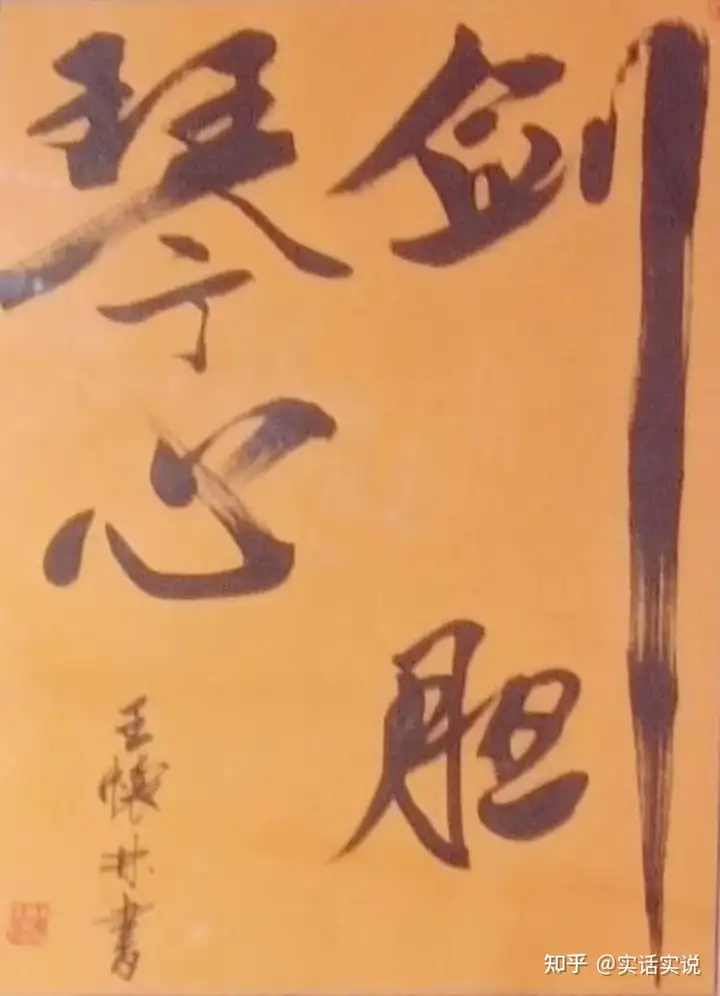 剑胆
琴心
王怀林书
知乎 @实话实说